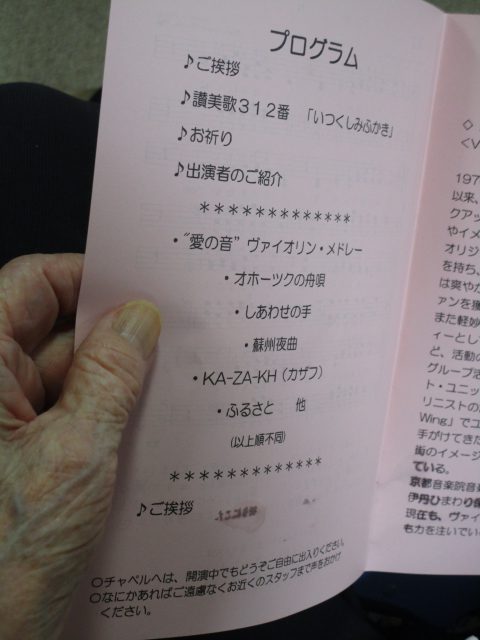 プログラム
♪ご挨拶
♪讃美歌312番 「いつくしみふかき」
♪お祈り
♪出演者のご紹介
*************
・"愛の音" ヴァイオリン・メドレー
・オホーツクの舟唄
・しあわせの手
・蘇州夜曲
・KA-ZA-KH(カザフ)
・ふるさと 他
(以上順不同)
*************
♪ご挨拶
○チャペルへは、開演中でもどうぞご自由に出入りください。
○なにかあればご遠慮なくお近くのスタッフまで声をおかけ
ください。
◇
<V
197
以来、
クアッ
やイメ
オリジ
を持ち、
は爽やか
ァンを獲
また軽妙
ィーとし
ど、活動の
グループ活
ト・ユニッ
リニストの
Wing」でユ
手がけてきた
街のイメージ
ている。
京都音楽院音楽
伊丹ひまわり保
現在も、ヴァイ
も力を注いでい